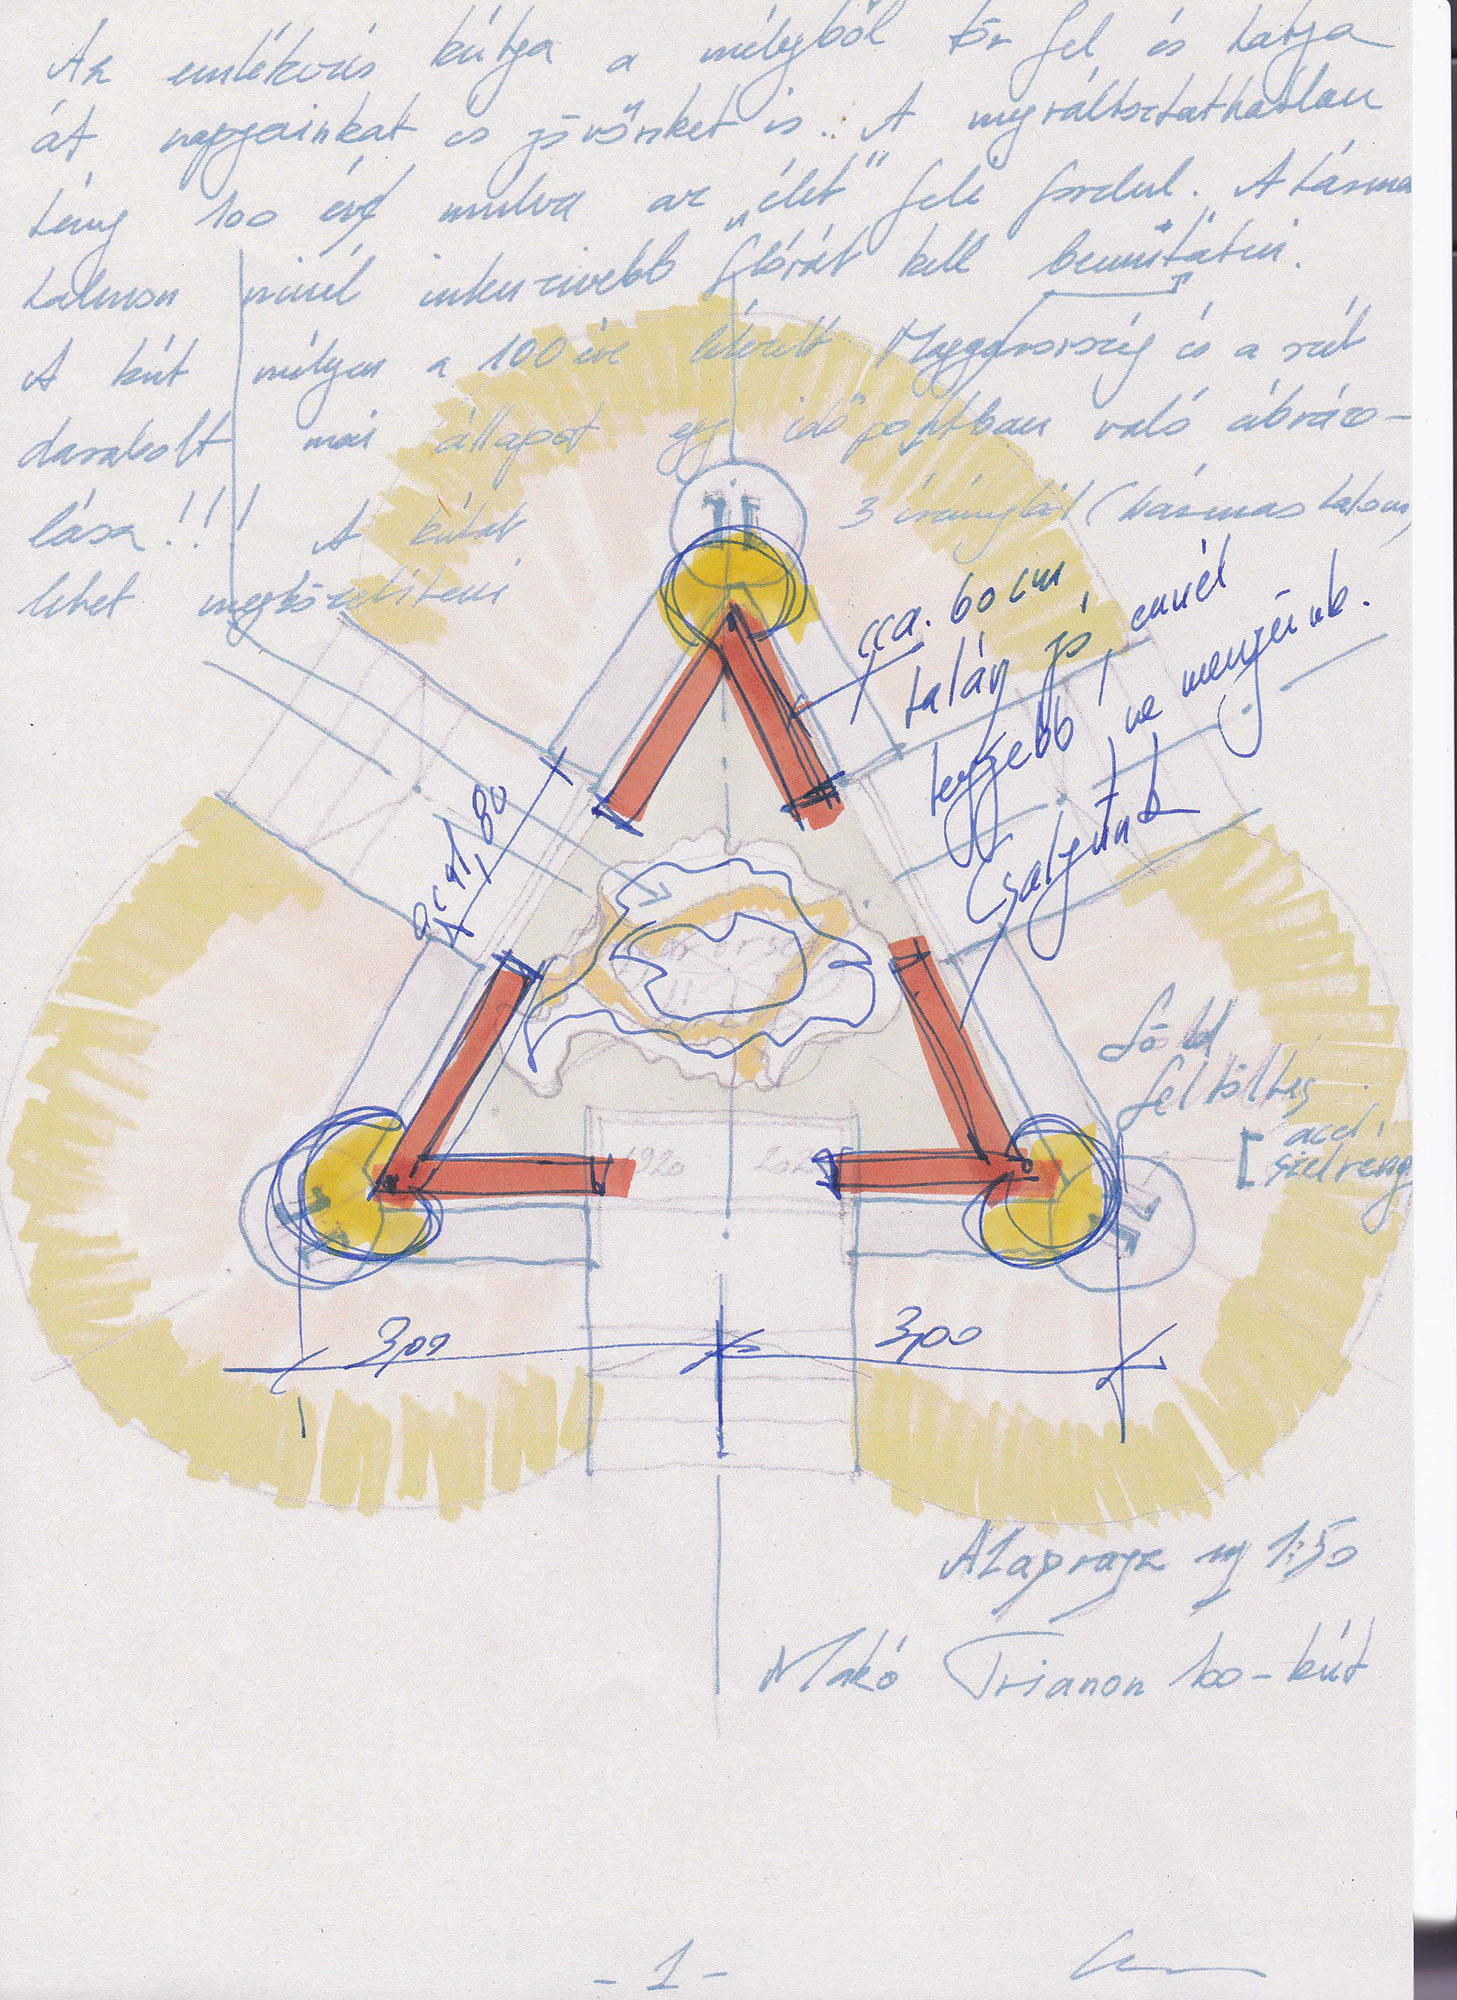 Az emlékezés kútja a mélyből tör fel és hatja
át napjainkat és jövőnket is. A megváltoztathatatlan
tény 100 év múlva az „élet" felé fordul. A hármas
halmon minél intenzívebb flórát kell bemutatni.
A kút mélyén a 100 éve létezett Magyarország és a szét
darabolt mai állapot egy időpontban való ábrázo-
lása!!! A kutat 3 irányból (hármas halom)
lehet megközelíteni
cca. 60 cm
talán jó, ennél
lejjebb ne menjünk.
csaljunk
1,80
föld
feltöltés
1920
3,00
3,00
Alaprajz 1:50
Makó Trianon 100-kút
- 1 -